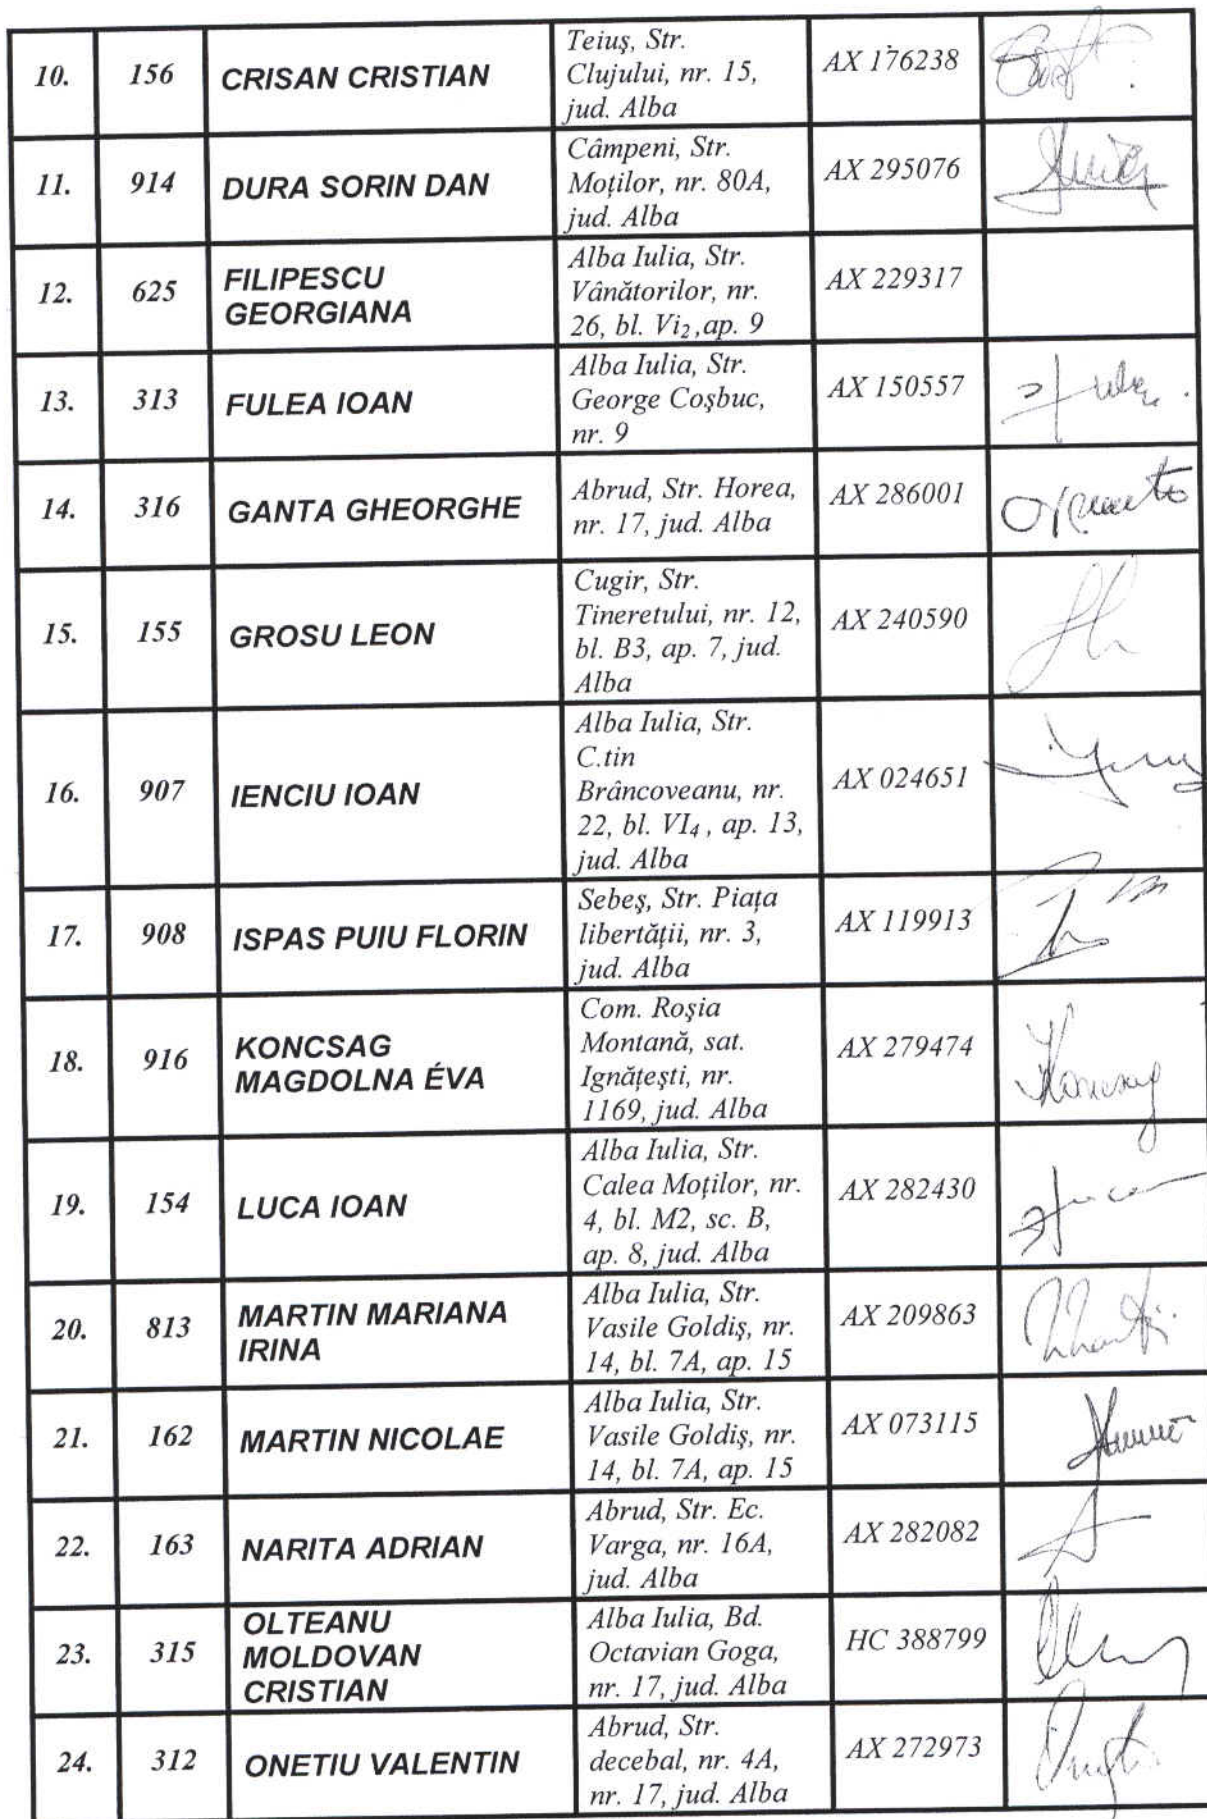 10. 156 CRISAN CRISTIAN Teiuş, Str. Clujului, nr. 15, jud. Alba AX 176238
11. 914 DURA SORIN DAN Câmpeni, Str. Moţilor, nr. 80A, jud. Alba AX 295076
12. 625 FILIPESCU GEORGIANA Alba Iulia, Str. Vânătorilor, nr. 26, bl. Vi₂,ap. 9 AX 229317
13. 313 FULEA IOAN Alba Iulia, Str. George Coşbuc, nr. 9 AX 150557
14. 316 GANTA GHEORGHE Abrud, Str. Horea, nr. 17, jud. Alba AX 286001
15. 155 GROSU LEON Cugir, Str. Tineretului, nr. 12, bl. B3, ap. 7, jud. Alba AX 240590
16. 907 IENCIU IOAN Alba Iulia, Str. C.tin Brâncoveanu, nr. 22, bl. VI₄ , ap. 13, jud. Alba AX 024651
17. 908 ISPAS PUIU FLORIN Sebeş, Str. Piaţa libertăţii, nr. 3, jud. Alba AX 119913
18. 916 KONCSAG MAGDOLNA ÉVA Com. Roşia Montană, sat. Ignăţeşti, nr. 1169, jud. Alba AX 279474
19. 154 LUCA IOAN Alba Iulia, Str. Calea Moţilor, nr. 4, bl. M2, sc. B, ap. 8, jud. Alba AX 282430
20. 813 MARTIN MARIANA IRINA Alba Iulia, Str. Vasile Goldiş, nr. 14, bl. 7A, ap. 15 AX 209863
21. 162 MARTIN NICOLAE Alba Iulia, Str. Vasile Goldiş, nr. 14, bl. 7A, ap. 15 AX 073115
22. 163 NARITA ADRIAN Abrud, Str. Ec. Varga, nr. 16A, jud. Alba AX 282082
23. 315 OLTEANU MOLDOVAN CRISTIAN Alba Iulia, Bd. Octavian Goga, nr. 17, jud. Alba HC 388799
24. 312 ONETIU VALENTIN Abrud, Str. decebal, nr. 4A, nr. 17, jud. Alba AX 272973